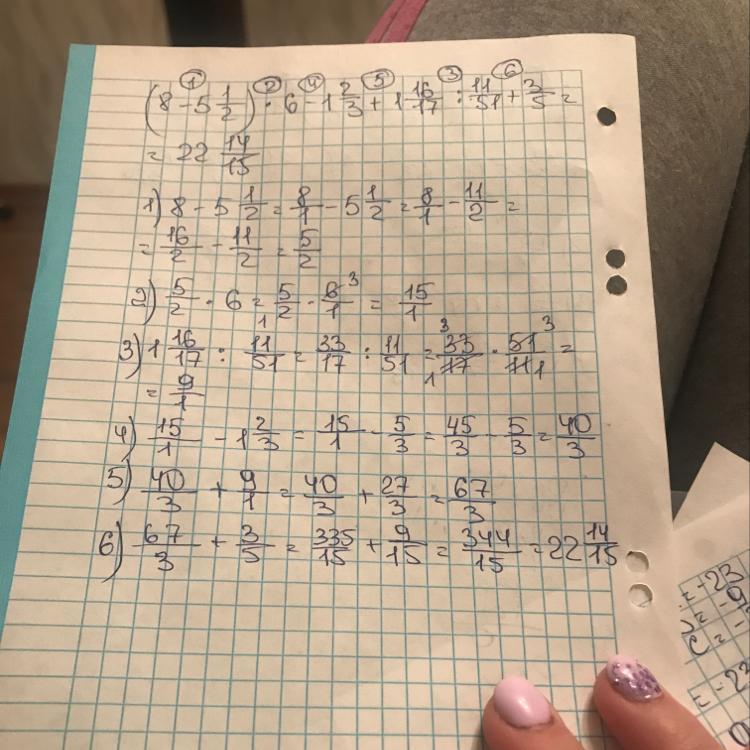 ① ② ④ ⑤ ③ ⑥
(8 - 5 1/2) · 6 - 1 2/3 + 1 16/17 : 11/51 + 3/5 =
= 22 14/15
1) 8 - 5 1/2 = 8/1 - 5 1/2 = 8/1 - 11/2 =
= 16/2 - 11/2 = 5/2
2) 5/2 · 6 = 5/2 · 6/1 = 15/1
3) 1 16/17 : 11/51 = 33/17 : 11/51 = 33/17 · 51/11 =
= 9/1
4) 15/1 - 1 2/3 = 15/1 - 5/3 = 45/3 - 5/3 = 40/3
5) 40/3 + 9/1 = 40/3 + 27/3 = 67/3
6) 67/3 + 3/5 = 335/15 + 9/15 = 344/15 = 22 14/15